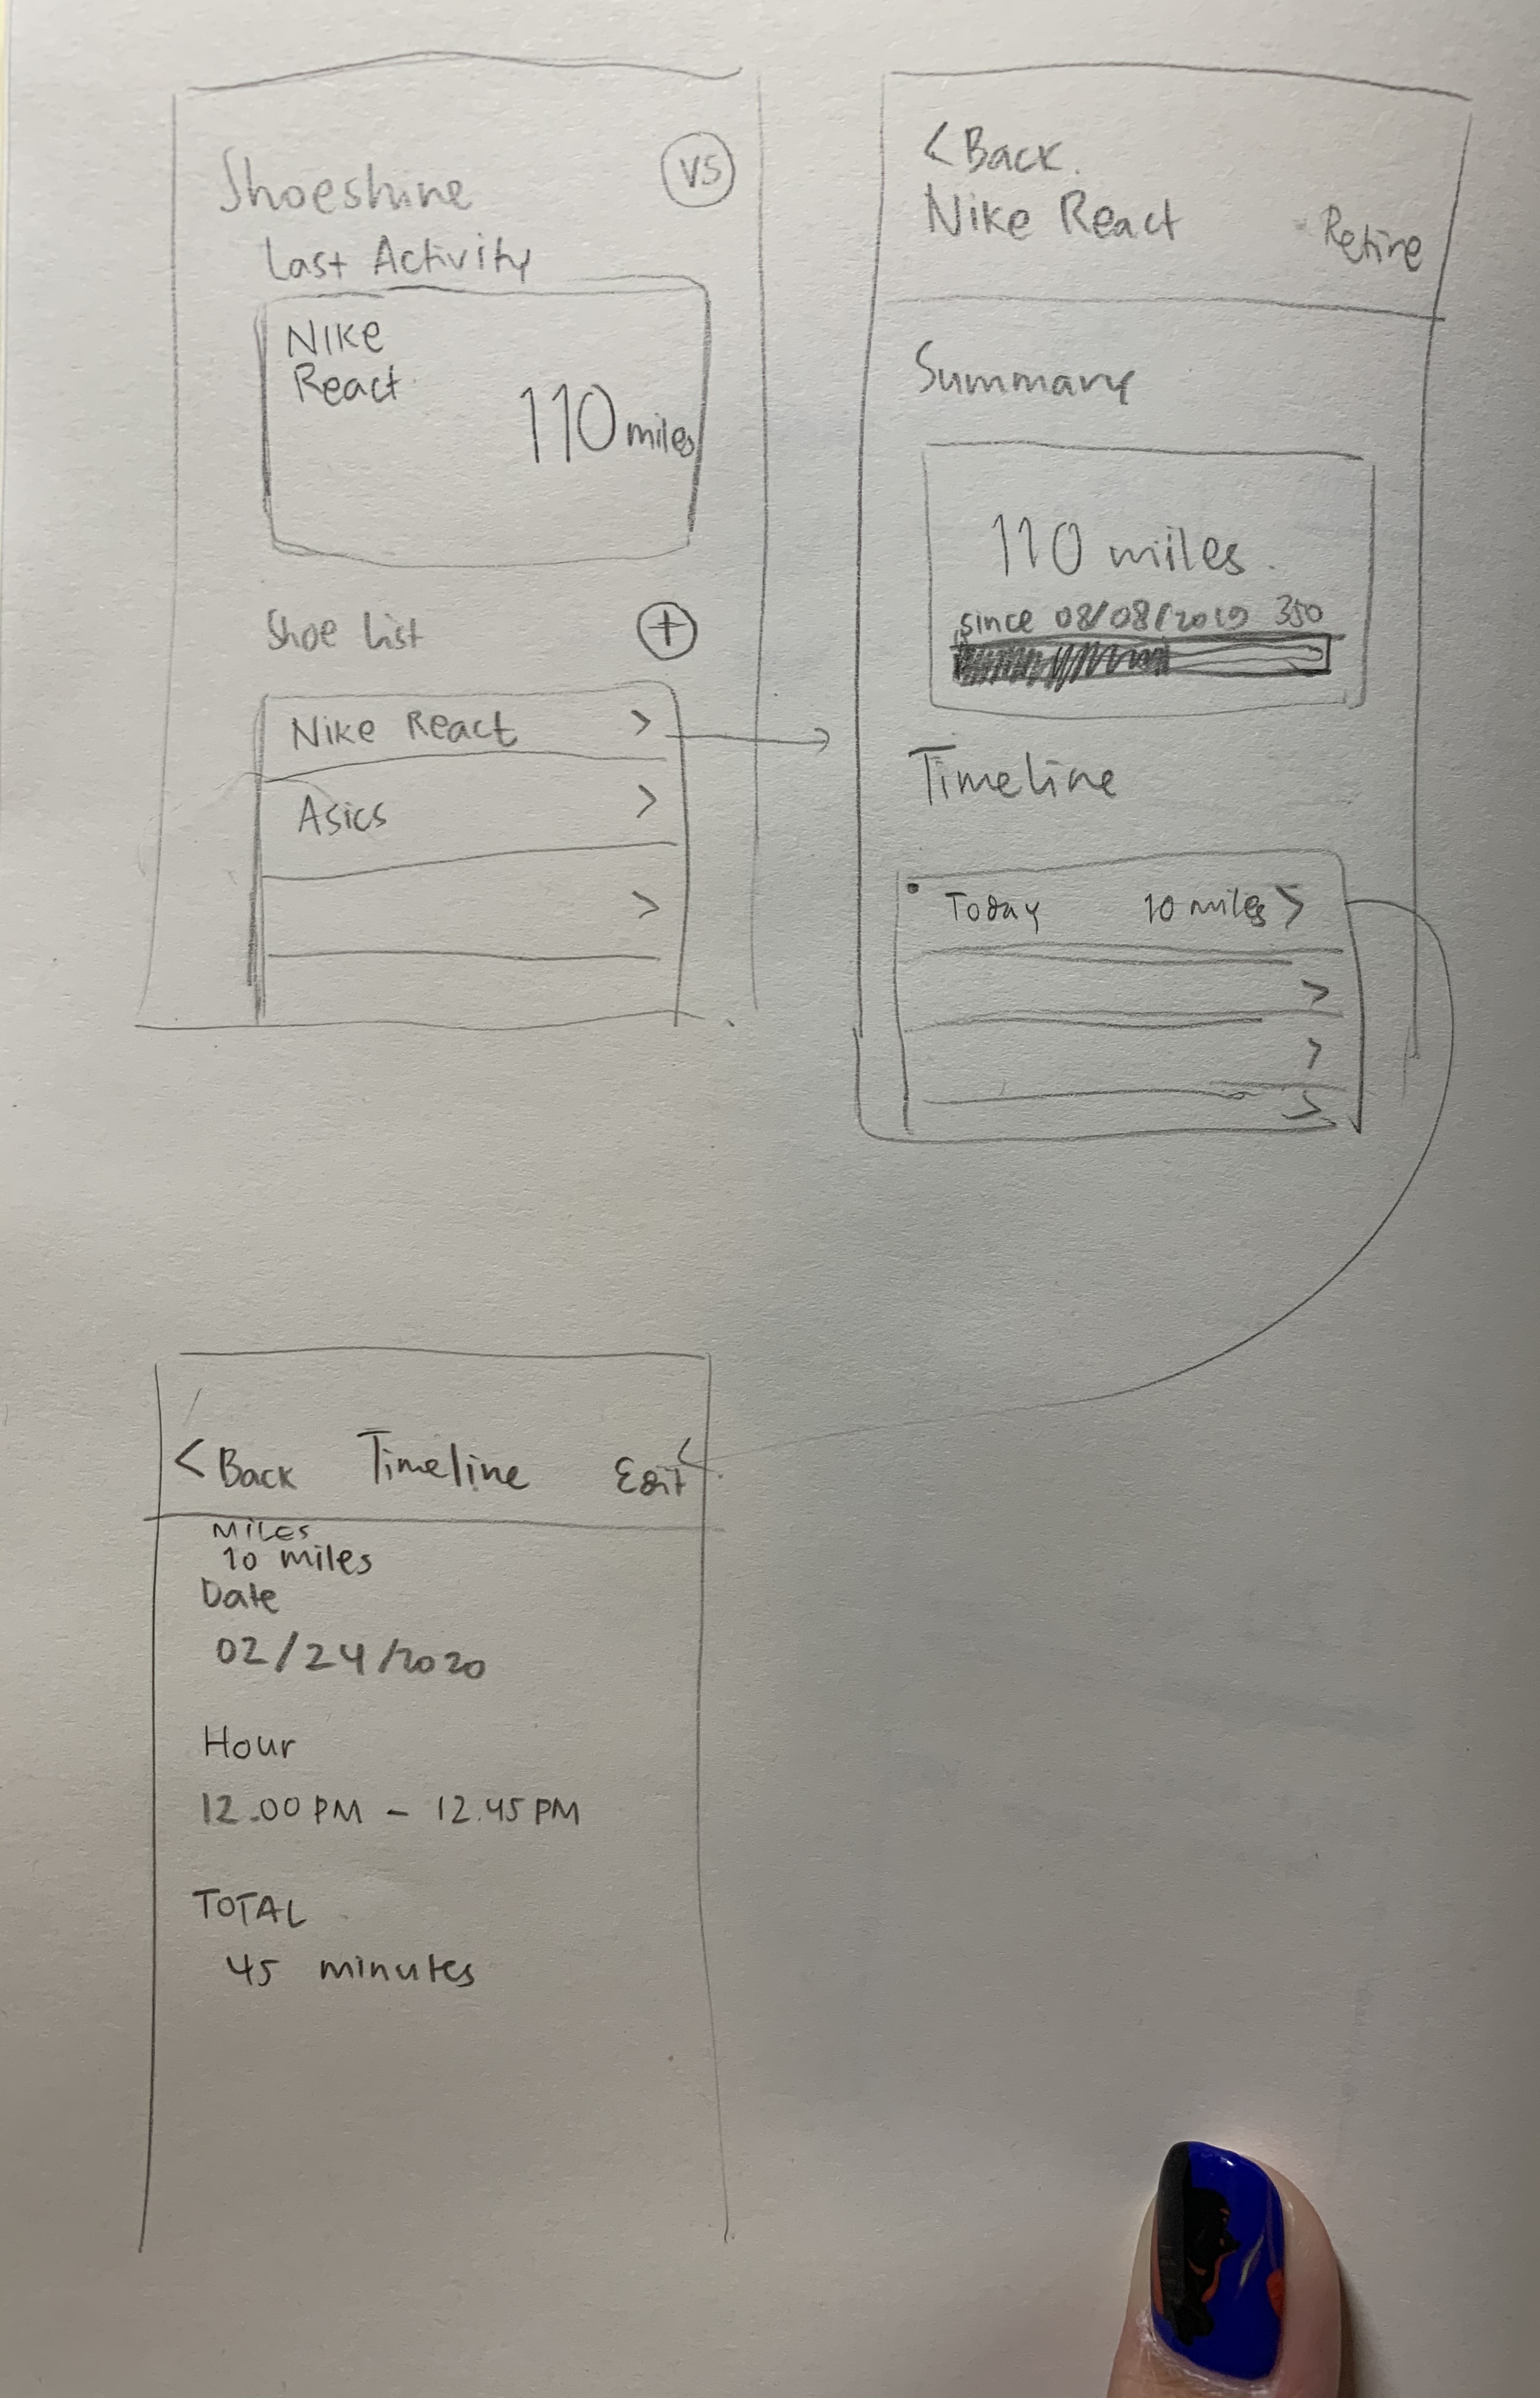 Shoeshine
VS
Last Activity
Nike
React
110 miles
Shoe List
+
Nike React >
Asics >
>
< Back.
Nike React
Retire
Summary
110 miles.
since 08/08/2019 350
Timeline
Today 10 miles >
>
>
>
< Back Timeline Edit
Miles
10 miles
Date
02/24/2020
Hour
12.00 PM - 12.45 PM
TOTAL
45 minutes